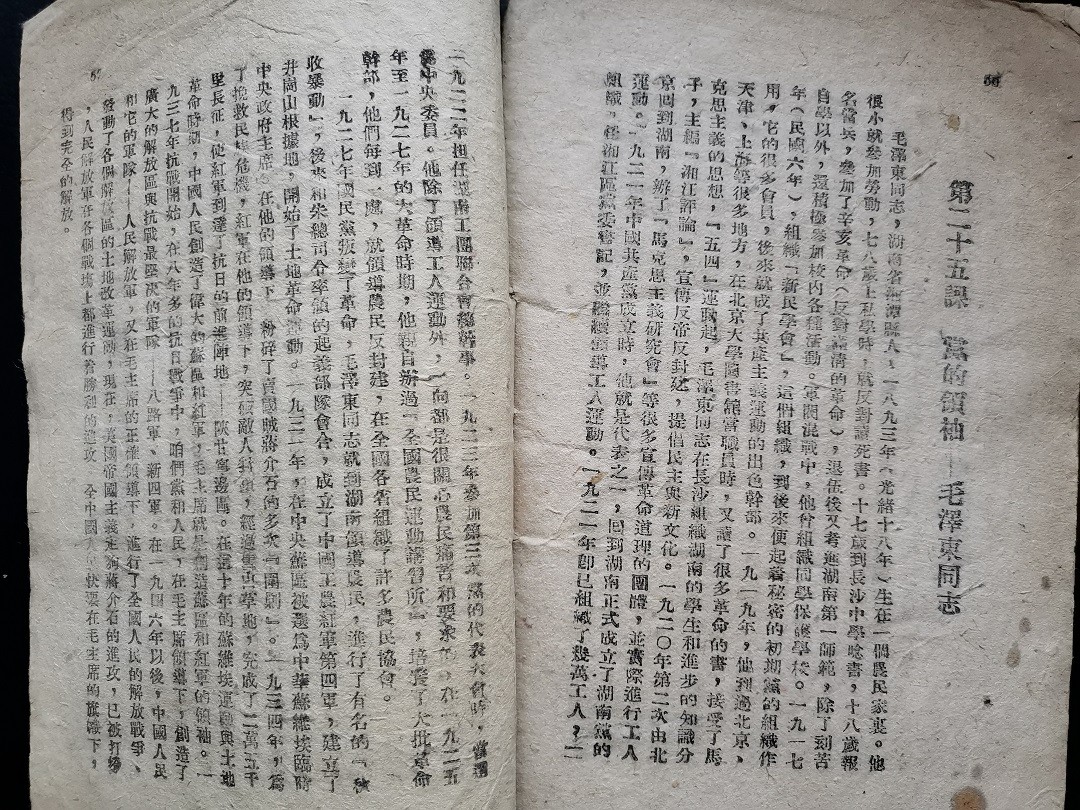 66
第二十五課　黨的領袖——毛澤東同志
毛澤東同志，湖南省湘潭縣人，一八九三年（光緒十八年）生在一個農民家裏。他
很小就參加勞動，七八歲上私學時，就反對讀死書。十七歲到長沙中學唸書，十八歲報
名當兵，參加了辛亥革命（反對滿清的革命），退伍後又考進湖南第一師範，除了刻苦
自學以外，還積極參加校內各種活動。軍閥混戰中，他曾組織同學保護學校。一九一七
年（民國六年），組織「新民學會」，這個組織，到後來便起着秘密的初期黨的組織作
用，它的很多會員，後來就成了共產主義運動的出色幹部。一九一九年，他到過北京、
天津、上海等很多地方，在北京大學圖書館當職員時，又讀了很多革命的書，接受了馬
克思主義的思想，「五四」運動起，毛澤東同志在長沙組織湖南的學生和進步的知識分
子，主編『湘江評論』，宣傳反帝反封建，提倡民主與新文化。一九二〇年第二次由北
京回到湖南，辦了『馬克思主義研究會』等很多宣傳革命道理的團體，並實際進行工人
運動。一九二一年中國共產黨成立時，他就是代表之一，回到湖南正式成立了湖南黨的
組織，稱湘江區黨委書記，並繼續領導工人運動。一九二一年卽已組織了幾萬工人？二
一九二二年担任湖南工團聯合會總幹事。一九二三年參加第三次黨的代表大會時，當選
爲中央委員。他除了領導工人運動外，一向都是很關心農民痛苦和要求的，在一九二五
年至一九二七年的大革命時期，他親自辦過『全國農民運動講習所』，培養了大批革命
幹部，他們每到一處，就領導農民反封建，在全國各省組織了許多農民協會。
一九二七年國民黨叛變了革命，毛澤東同志就到湖南領導農民，進行了有名的「秋
收暴動」，後來和朱總司令率領的起義部隊會合，成立了中國工農紅軍第四軍，建立了
井崗山根據地，開始了土地革命運動。一九三一年，在中央蘇區被選爲中華蘇維埃臨時
中央政府主席。在他的領導下，粉碎了賣國賊蔣介石的多次『圍剿』。一九三四年，爲
了挽救民族危機，紅軍在他的領導下，突破敵人，經過雪山草地，完成了二萬五千
里長征，使紅軍到達了抗日的前進陣地——陝甘寧邊區。在這十年的蘇維埃運動與土地
革命時期，中國人民創造了偉大的蘇區和紅軍，毛主席就是創造蘇區和紅軍的領袖。一
九三七年抗戰開始，在八年多的抗日戰爭中，咱們黨和人民，在毛主席領導下，創造了
廣大的解放區與抗戰最堅決的軍隊——八路軍、新四軍。在一九四六年以後，中國人民
和它的軍隊——人民解放軍，又在毛主席的正確領導下，進行了全國人民的解放戰爭、
發動了各個解放區的土地改革運動，現在，美國帝國主義走狗蔣介石的進攻，已被打垮
，人民解放軍在各個戰場上都進行着勝利的進攻　全中國人民快要在毛主席的旗幟下，
得到完全的解放。
67